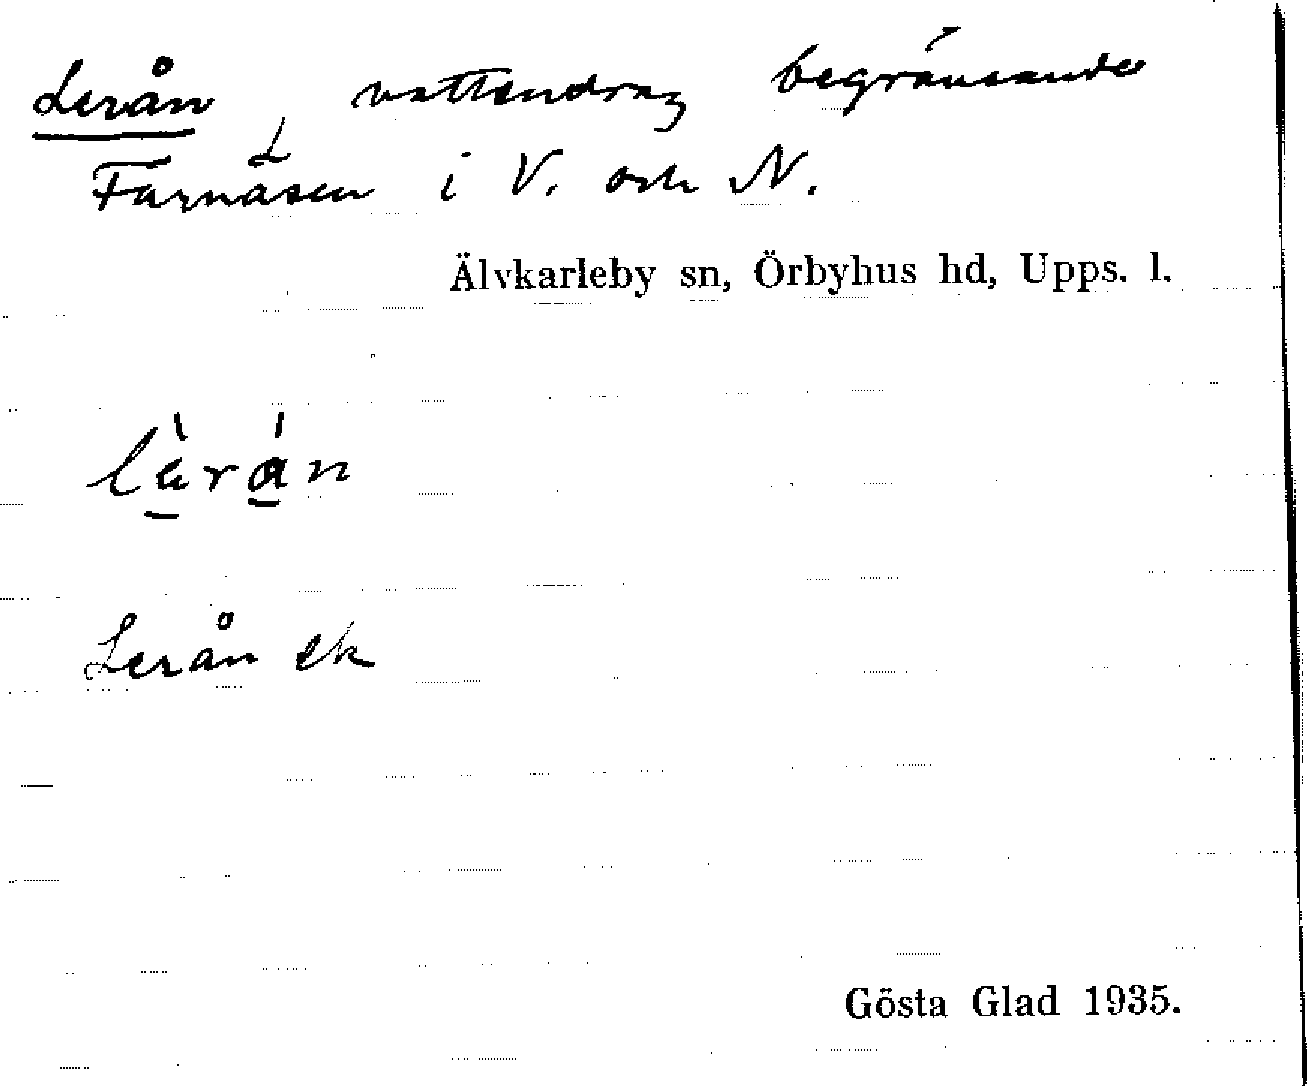 Lerån, vattendrag begränsande
Farnäsen i V. och N.
Älvkarleby sn, Örbyhus hd, Upps. l.
Lerån ek
Gösta Glad 1935.